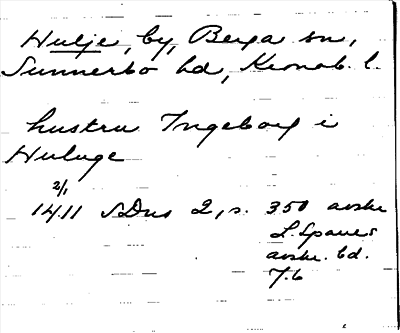 Hulje, by, Berga sn,
Sunnerbo hd, Kronob. l.
hustru Ingeborg i
Huluge
2/1
1411 SDns 2, s. 350 avskr
L. Sparres
avskr. bd.
7.6